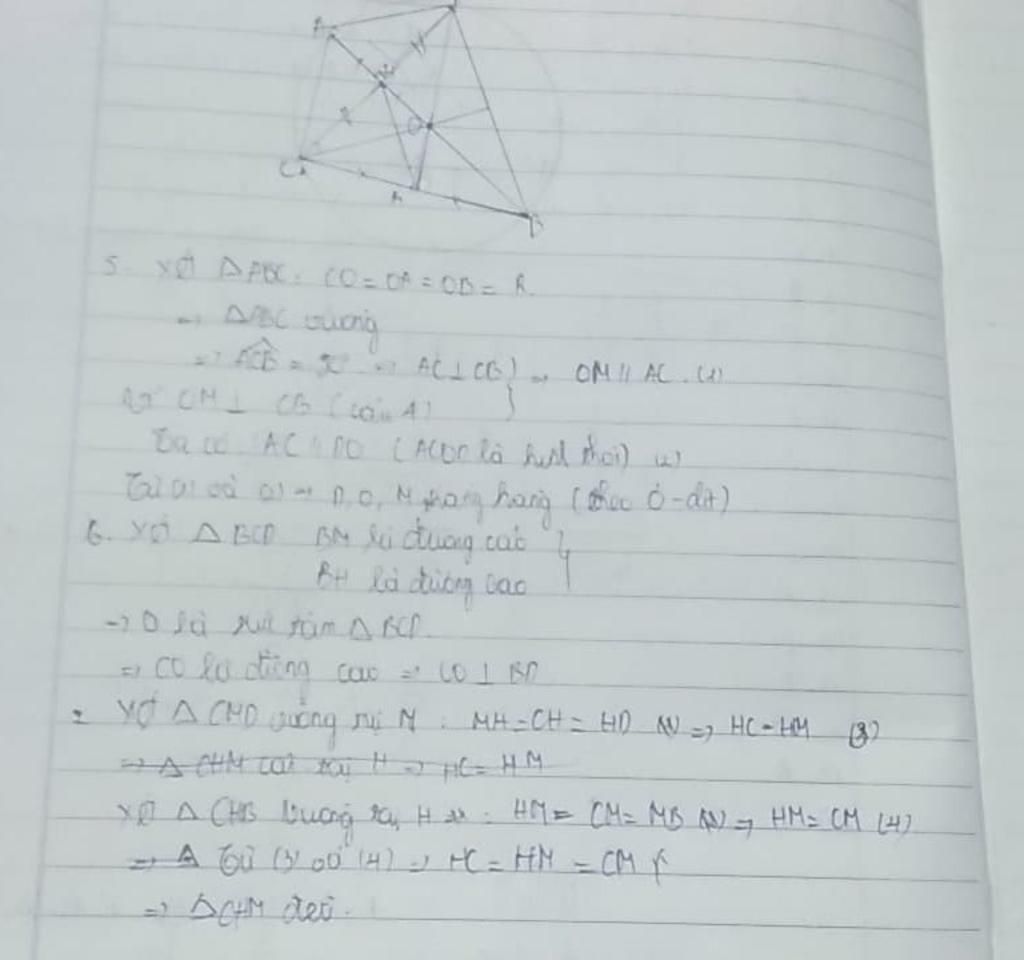 A
H
O
C
M
B
5. Xét △ABC: CO = OA = OB = R
→ △ABC vuông
=> ACB = 90° → AC ⊥ CB } → OM // AC (1)
OM ⊥ CB (câu 4) }
Ta có AC // DO (ACDO là hình thoi) (2)
Từ (1) và (2) → D, O, M thẳng hàng (theo Ơ-clit)
6. Xét △BCD BM là đường cao }
BH là đường cao
→ O là trực tâm △BCD
=> CO là đường cao => CO ⊥ BD
Xét △CMD vuông tại M: MH = CH = HD => HC = HM (3)
=> △CHM cân tại H => HC = HM
Xét △CHB vuông tại H: HM = CM = MB => HM = CM (4)
=> Từ (3) và (4) => HC = HM = CM
=> △CHM đều.